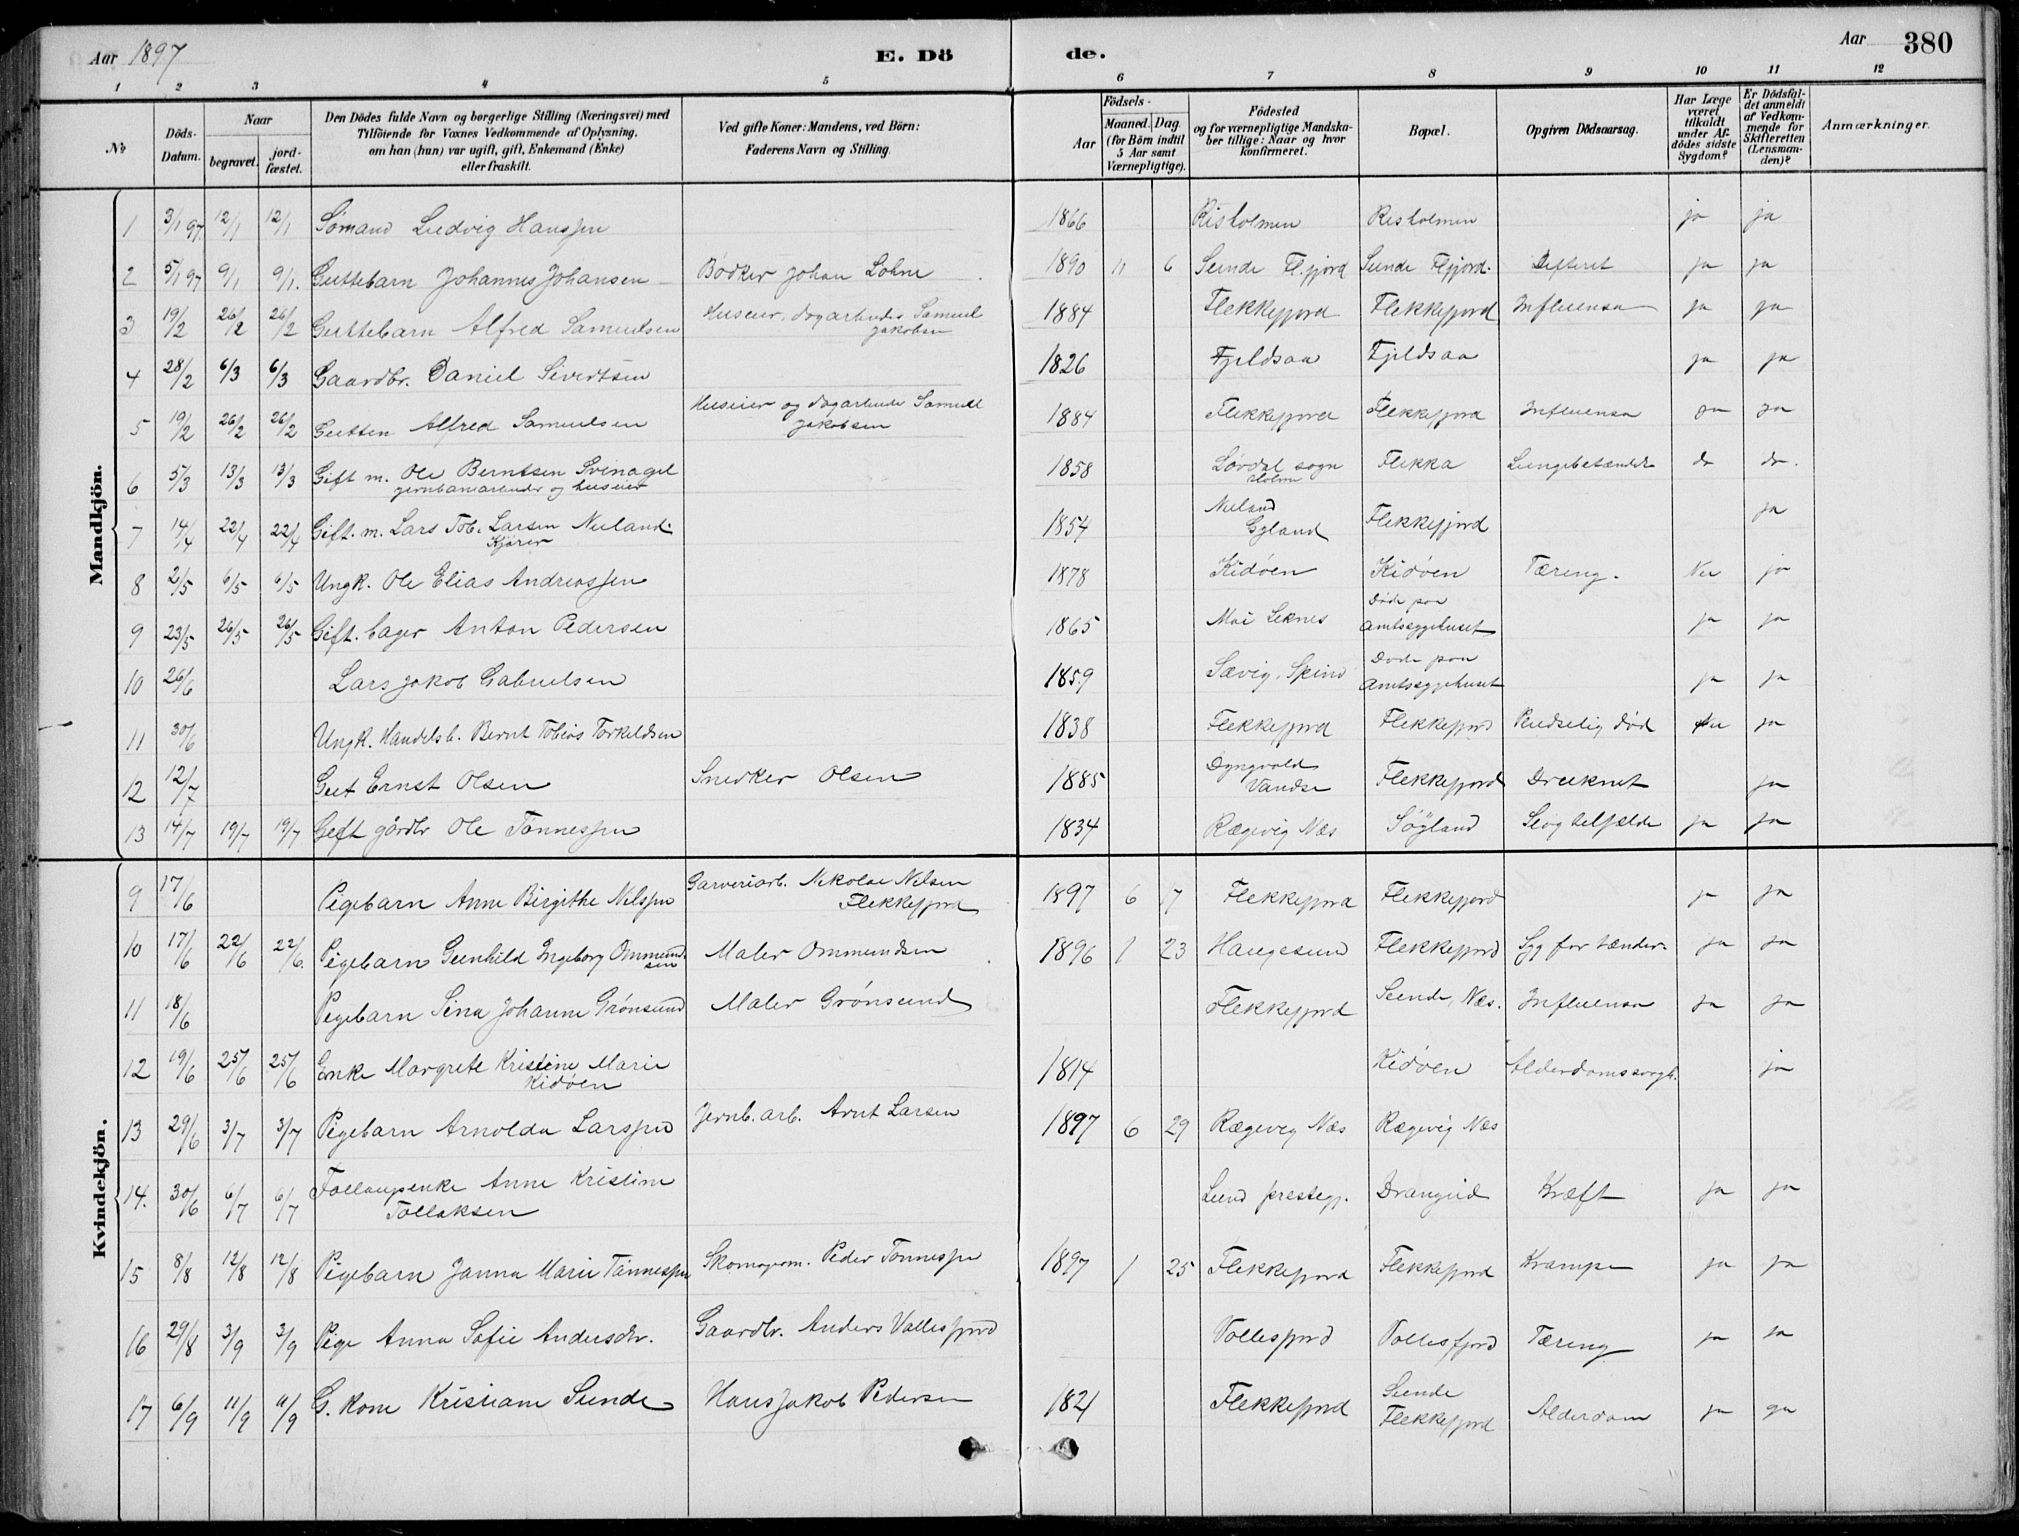 Aar 1897 E. Dö de. Aar 380
1 2 3 4 5 6 7 8 9 10 11 12
No Döds-Datum. Naar begravet. jord-fæstet. Den Dödes fulde Navn og borgerlige Stilling (Næringsvei) med Tilföiende for Voxnes Vedkommende af Oplysning, om han (hun) var ugift, gift, Enkemand (Enke) eller fraskilt. Ved gifte Koner: Mandens, ved Börn: Faderens Navn og Stilling. Födsels- Aar Maaned. Dag (for Börn indtil 5 Aar samt Værnepligtige). Födested og for værnepligtige Mandskaber tillige: Naar og hvor konfirmeret. Bopæl. Opgiven Dödsaarsag. Har Læge været tilkaldt under Afdödes sidste Sygdom? Er Dödsfaldet anmeldt af Vedkommende for Skifteretten (Lensmanden)? Anmærkninger.
Mandkjön.
1 3/1 97. 12/1 12/1 Sömand Ludvig Hanssen 1866 Risholmen Risholmen ja ja
2 5/1 97 9/1 9/1. Guttebarn Johannes Johansen Bödker Johan Lohne 1890 11 6 Sunde Fl.fjord Sunde Flfjord. Difterit ja ja
3 19/2 26/2 26/2 Guttebarn Alfred Samuelsen Huseier, dagarbeider Samuel Jakobsen 1884 Flekkefjord Flekkefjord Influensa ja ja
4 28/2 6/3 6/3 Gaardbr. Daniel Sivertsen 1826 Fjeldsaa Fjeldsaa ja ja
5 19/2 26/2 26/2 Gutten Alfred Samuelsen Huseier og dagarbeider Samuel Jakobsen 1884 Flekkefjord Flekkefjord Influensa ja ja
6 5/3 13/3 13/3 Gift m. Ole Berntsen Svinagel jernbanarbeider og huseier 1858 Lövdal sogn Holm Flikka Lungebetændelse do do.
7 14/4 22/4 22/4 Gift. m. Lars Tob. Larsen Nuland. Kjörer 1854 Nuland Gyland Flekkefjord ja
8 2/5 6/5 6/5 Ungk. Ole Elias Andreassen 1878 Kidöen Kidöen Tæring. Nei ja
9 23/5 26/5 26/5 Gift. bager Anton Pedersen 1865 Moi Leknes Döde paa Amtssygehuset ja ja
10 26/6 Lars Jakob Gabrielsen 1859 Sævig, Spind Döde paa Amtssygehuset ja ja
11 30/6 Ungk. Handelsb. Bernt Tobias Torkeldsen 1838 Flekkefjord Flekkefjord Pludselig död nei ja
12 12/7 Gut Ernst Olsen Snedker Olsen 1885 Dyngvold Vandse Flekkefjord Druknet ja
13 14/7 19/7 19/7 Gift gårdbr Ole Tönnessen 1834 Rægevig Næs Söyland Slagtilfælde ja ja
Kvindekjön.
9 17/6 Pigebarn Anne Birgithe Nilssen Garveriarb. Nikolai Nilsen Flekkefjord 1897 6 17 Flekkefjord Flekkefjord ja ja
10 17/6 22/6 22/6. Pigebarn Gunhild Ingeborg Ommundsen Maler Ommundsen 1896 1 23 Haugesund Flekkefjord Syg for tænder. ja ja
11 18/6 Pigebarn Sina Johanne Grönsund Maler Grönsund Flekkefjord Sunde, Næs. Influensa ja ja
12 19/6 25/6 25/6 Enke Margrete Kristine Marie Kidöen 1814 Kidöen Alderdomssvagh. ja
13 29/6 3/7 3/7 Pigebarn Arnolda Larssen Jernb. arb. Arnt Larsen 1897 6 29 Rægevig Næs Rægevig Næs
14. 30/6 6/7 6/7 Föllaugsenke Anne Kristine Tollaksen Lund prestegj. Drangeid Kræft ja ja
15 8/8 12/8 12/8 Pigebarn Janna Marie Tönnessen Skomagerm. Peder Tönnessen 1897 1 25 Flekkefjord Flekkefjord Krampe ja ja
16 29/8 3/9 3/9 Pige Anna Sofie Andersdtr. Gaardbr. Anders Vollesfjord Vollesfjord Vollesfjord Tæring ja ja
17 6/9 11/9 11/9 G. kone Kristiane Sunde Hans Jakob Pedersen 1821 Flekkefjord Sunde Flekkefjord Alderdom ja ja